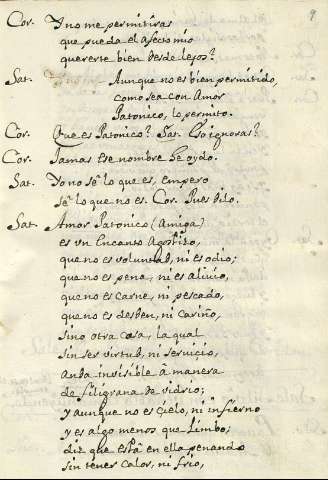 9
Cor. Y no me permitiras
que pueda el afecto mio
quererte bien desde lejos?
Sat. Aunque no es bien permitido,
como sea con Amor
Patonico, lo permito.
Cor. Que es Patonico? Sat. Esso ignoras?
Cor. Jamas ese nombre he oydo.
Sat. Yo no sê lo que es, empero
sê lo que no es. Cor. Pues dilo.
Sat. Amor Patonico (Amiga)
es vn Encanto
que no es voluntad, ni es odio;
que no es pena, ni es alivio,
que no es carne, ni pescado,
que no es desden, ni cariño,
sino otra cosa, la qual
sin ser virtud, ni servicio,
anda invisible â manera
de filigrana de vidrio;
y aunque no es çielo, ni infierno
y es algo menos que limbo;
diz que estâ en ella penando
sin tener calor, ni frio,